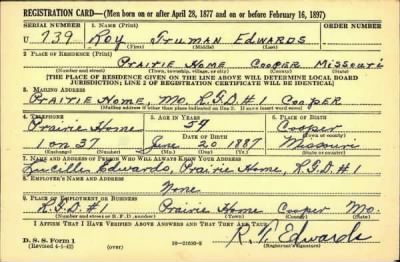 REGISTRATION CARD—(Men born on or after April 28, 1877 and on or before February 16, 1897)
SERIAL NUMBER 1. NAME (Print) ORDER NUMBER
U 739 Roy Truman Edwards
(First) (Middle) (Last)
2. PLACE OF RESIDENCE (Print)
Prairie Home Cooper Missouri
(Number and street) (Town, township, village, or city) (County) (State)
[THE PLACE OF RESIDENCE GIVEN ON THE LINE ABOVE WILL DETERMINE LOCAL BOARD
JURISDICTION; LINE 2 OF REGISTRATION CERTIFICATE WILL BE IDENTICAL]
3. MAILING ADDRESS
Prairie Home Mo. R.F.D. #1 Cooper
[Mailing address if other than place indicated on line 2. If same insert word same]
4. TELEPHONE 5. AGE IN YEARS 6. PLACE OF BIRTH
Prairie Home 54 Cooper
DATE OF BIRTH (Town or county)
1 on 37 June 20 1887 Missouri
(Exchange) (Number) (Mo.) (Day) (Yr.) (State or country)
7. NAME AND ADDRESS OF PERSON WHO WILL ALWAYS KNOW YOUR ADDRESS
Lucille Edwards, Prairie Home, R.F.D. #1
8. EMPLOYER'S NAME AND ADDRESS
None
9. PLACE OF EMPLOYMENT OR BUSINESS
R.F.D. #1 Prairie Home Cooper Mo.
(Number and street or R. F. D. number) (Town) (County) (State)
I AFFIRM THAT I HAVE VERIFIED ABOVE ANSWERS AND THAT THEY ARE TRUE.
D. S. S. Form 1
(Revised 4-1-42) (over) 16—21630-2 R. T. Edwards
(Registrant's signature)